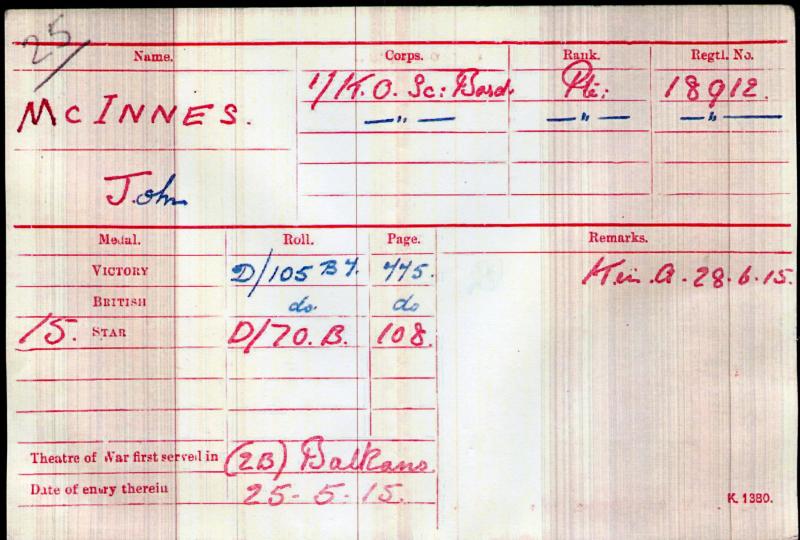 25
Name. Corps. Rank. Regtl. No.
McINNES. 1/K.O. Sc: Bord. Pte: 18912.
—"— —"— —"—
John
Medal. Roll. Page. Remarks.
VICTORY D/105 B7. 445. K in A. 28.6.15.
BRITISH do. do
15. STAR D/70.B. 108.
Theatre of War first served in (2B) Balkans.
Date of entry therein 25-5-15.
K. 1380.